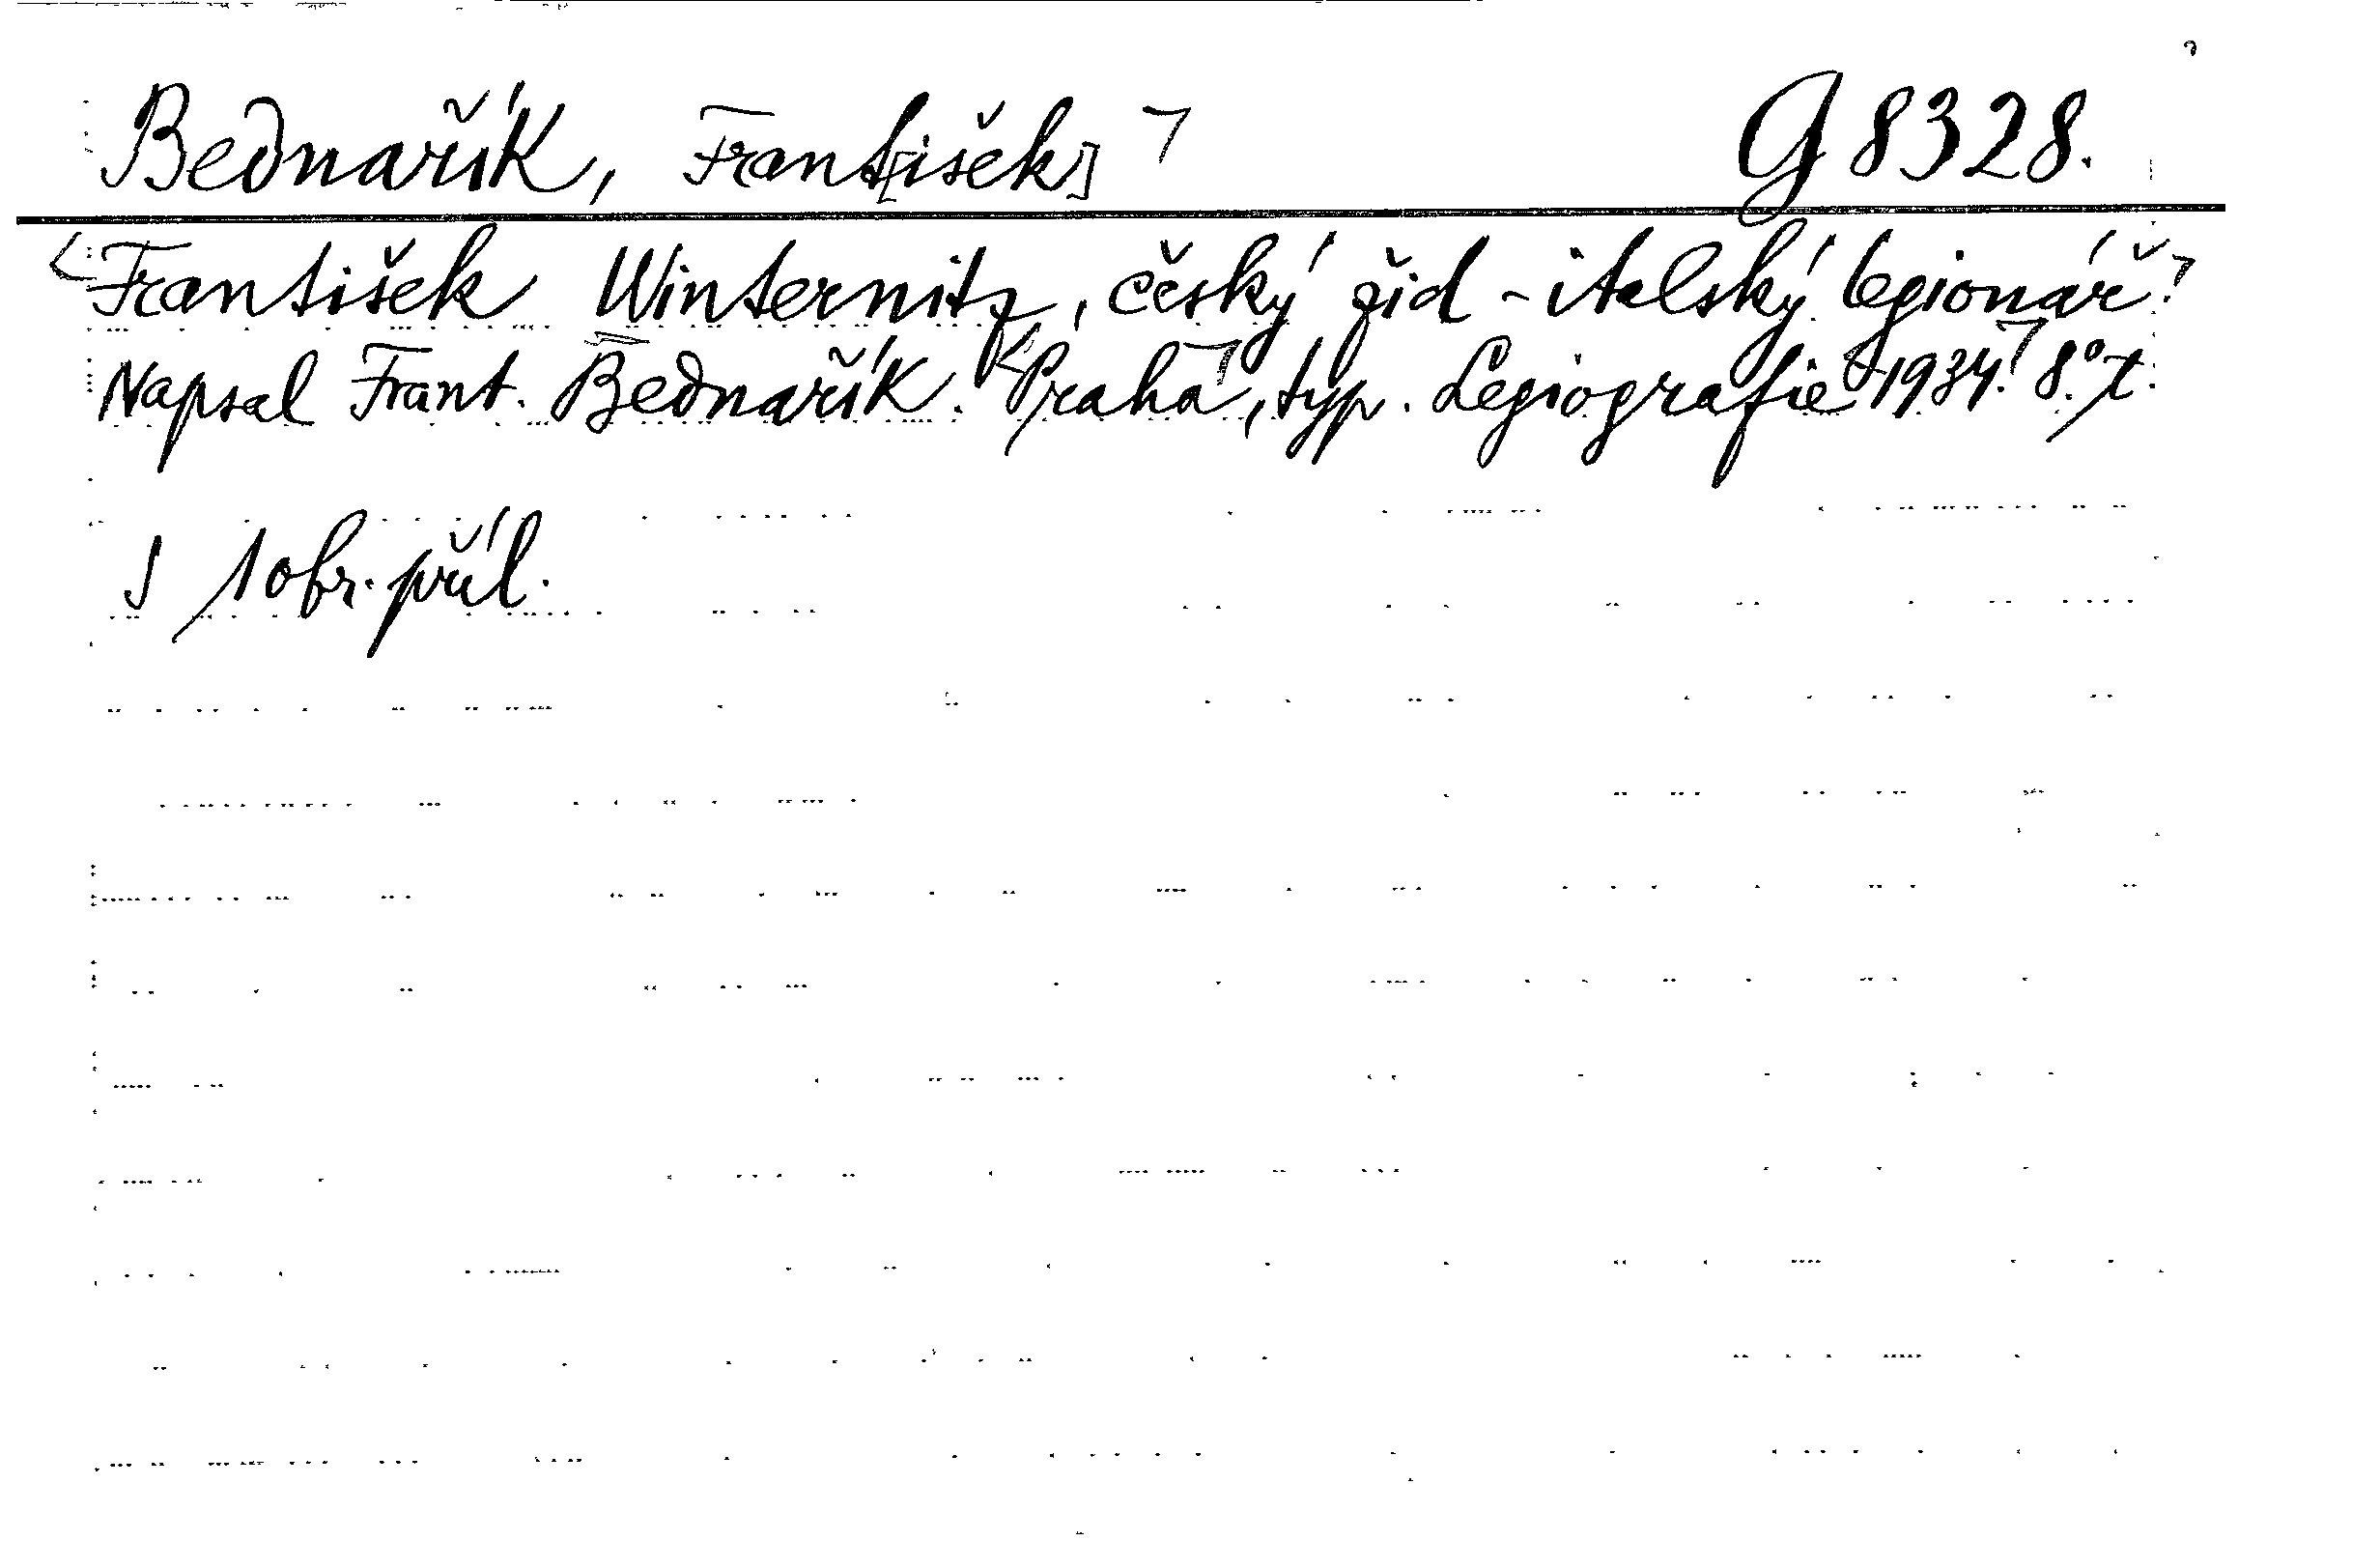 Bednařík, Frant[išek] G 8328.
František Winternitz, český žid - italský legionář.
Napsal Frant. Bednařík. Praha, typ. Legiografie 1934. 8°. t.
S 1 obr. příl.